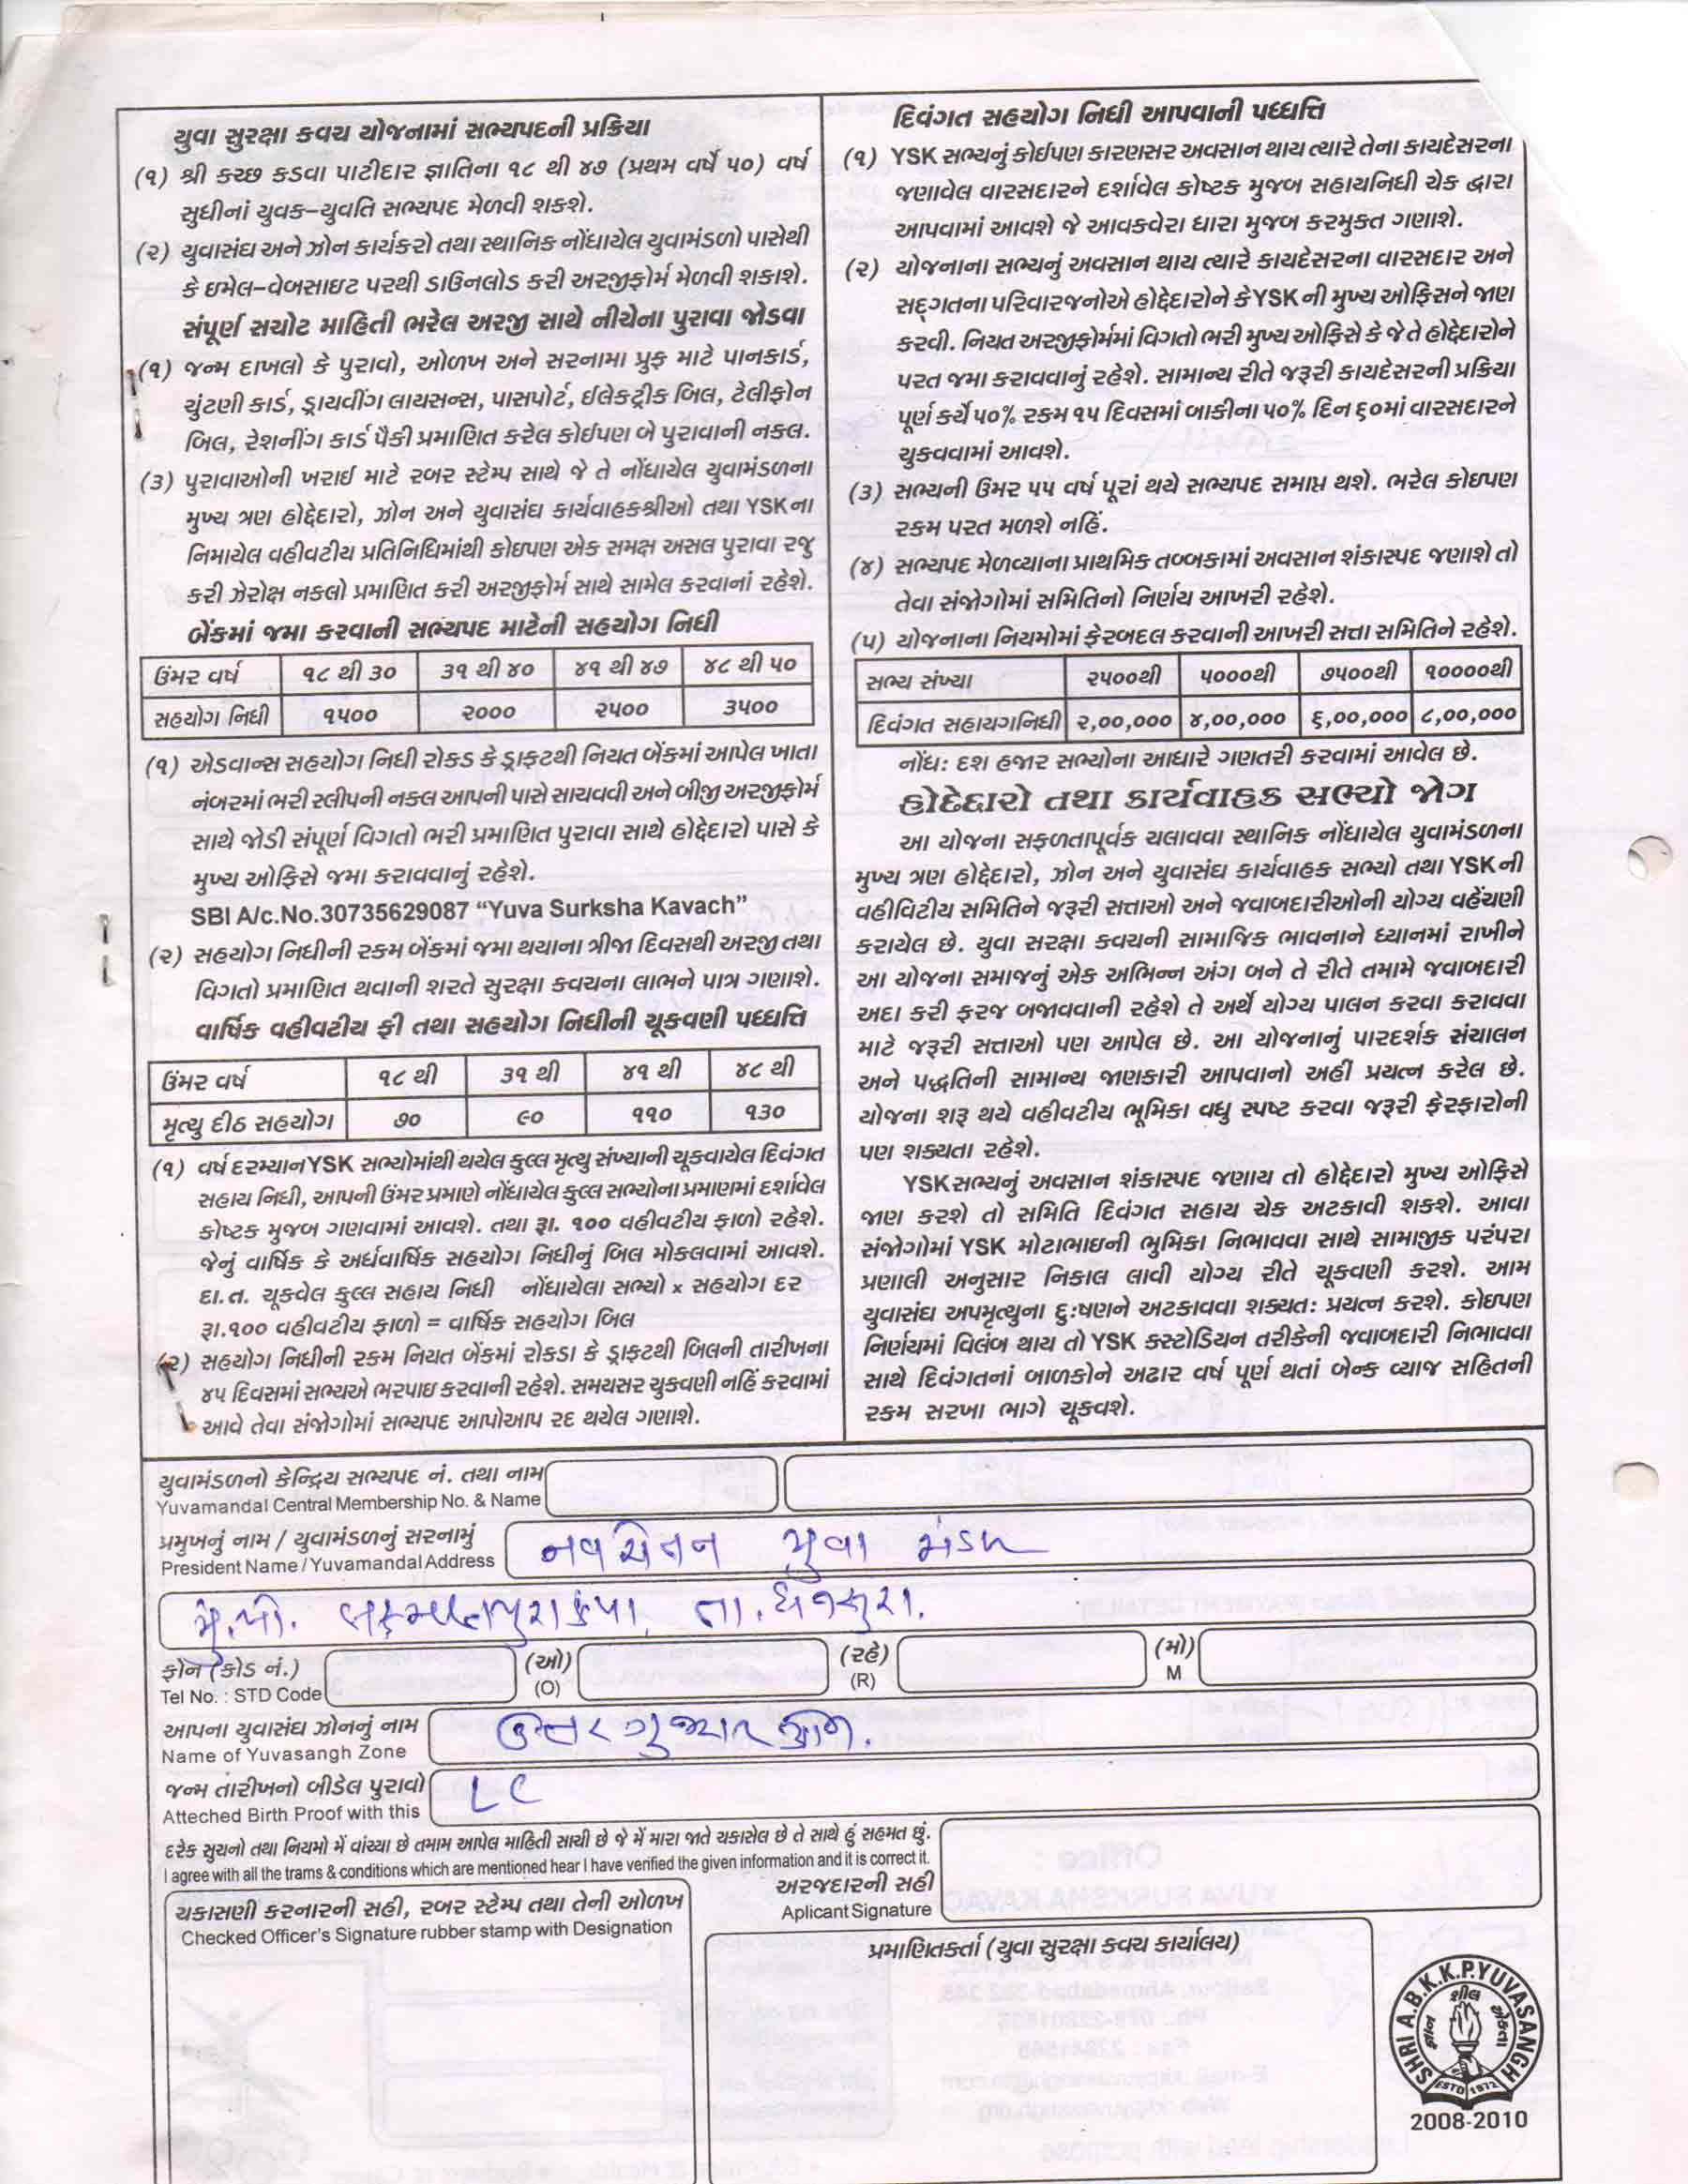 યુવા સુરક્ષા કવચ યોજનામાં સભ્યપદની પ્રક્રિયા
(૧) શ્રી કચ્છ કડવા પાટીદાર જ્ઞાતિના ૧૮ થી ૪૭ (પ્રથમ વર્ષે ૫૦) વર્ષ
સુધીનાં યુવક–યુવતિ સભ્યપદ મેળવી શકશે.
(૨) યુવાસંઘ અને ઝોન કાર્યકરો તથા સ્થાનિક નોંધાયેલ યુવામંડળો પાસેથી
કે ઇમેલ–વેબસાઇટ પરથી ડાઉનલોડ કરી અરજીફોર્મ મેળવી શકાશે.
સંપૂર્ણ સચોટ માહિતી ભરેલ અરજી સાથે નીચેના પુરાવા જોડવા
(૧) જન્મ દાખલો કે પુરાવો, ઓળખ અને સરનામા પ્રુફ માટે પાનકાર્ડ,
ચુંટણી કાર્ડ, ડ્રાયવીંગ લાયસન્સ, પાસપોર્ટ, ઈલેકટ્રીક બિલ, ટેલીફોન
બિલ, રેશનીંગ કાર્ડ પૈકી પ્રમાણિત કરેલ કોઈપણ બે પુરાવાની નકલ.
(૩) પુરાવાઓની ખરાઈ માટે રબર સ્ટેમ્પ સાથે જે તે નોંધાયેલ યુવામંડળના
મુખ્ય ત્રણ હોદ્દેદારો, ઝોન અને યુવાસંઘ કાર્યવાહકશ્રીઓ તથા YSK ના
નિમાયેલ વહીવટીય પ્રતિનિધિમાંથી કોઇપણ એક સમક્ષ અસલ પુરાવા રજુ
કરી ઝેરોક્ષ નકલો પ્રમાણિત કરી અરજીફોર્મ સાથે સામેલ કરવાનાં રહેશે.
બેંકમાં જમા કરવાની સભ્યપદ માટેની સહયોગ નિધી
ઉંમર વર્ષ ૧૮ થી ૩૦ ૩૧ થી ૪૦ ૪૧ થી ૪૭ ૪૮ થી ૫૦
સહયોગ નિધી ૧૫૦૦ ૨૦૦૦ ૨૫૦૦ ૩૫૦૦
(૧) એડવાન્સ સહયોગ નિધી રોકડ કે ડ્રાફ્ટથી નિયત બેંકમાં આપેલ ખાતા
નંબરમાં ભરી સ્લીપની નકલ આપની પાસે સાચવવી અને બીજી અરજીફોર્મ
સાથે જોડી સંપૂર્ણ વિગતો ભરી પ્રમાણિત પુરાવા સાથે હોદ્દેદારો પાસે કે
મુખ્ય ઓફિસે જમા કરાવવાનું રહેશે.
SBI A/c.No.30735629087 “Yuva Surksha Kavach”
(૨) સહયોગ નિધીની રકમ બેંકમાં જમા થયાના ત્રીજા દિવસથી અરજી તથા
વિગતો પ્રમાણિત થવાની શરતે સુરક્ષા કવચના લાભને પાત્ર ગણાશે.
વાર્ષિક વહીવટીય ફી તથા સહયોગ નિધીની ચૂકવણી પધ્ધત્તિ
ઉંમર વર્ષ ૧૮ થી ૩૧ થી ૪૧ થી ૪૮ થી
મૃત્યુ દીઠ સહયોગ ૭૦ ૯૦ ૧૧૦ ૧૩૦
(૧) વર્ષ દરમ્યાન YSK સભ્યોમાંથી થયેલ કુલ્લ મૃત્યુ સંખ્યાની ચૂકવાયેલ દિવંગત
સહાય નિધી, આપની ઉંમર પ્રમાણે નોંધાયેલ કુલ્લ સભ્યોના પ્રમાણમાં દર્શાવેલ
કોષ્ટક મુજબ ગણવામાં આવશે. તથા રૂા. ૧૦૦ વહીવટીય ફાળો રહેશે.
જેનું વાર્ષિક કે અર્ધવાર્ષિક સહયોગ નિધીનું બિલ મોકલવામાં આવશે.
દા.ત. ચૂકવેલ કુલ્લ સહાય નિધી નોંધાયેલા સભ્યો x સહયોગ દર
રૂા.૧૦૦ વહીવટીય ફાળો = વાર્ષિક સહયોગ બિલ
(૨) સહયોગ નિધીની રકમ નિયત બેંકમાં રોકડા કે ડ્રાફ્ટથી બિલની તારીખના
૪૫ દિવસમાં સભ્યએ ભરપાઇ કરવાની રહેશે. સમયસર ચુકવણી નહિં કરવામાં
આવે તેવા સંજોગોમાં સભ્યપદ આપોઆપ રદ થયેલ ગણાશે.
દિવંગત સહયોગ નિધી આપવાની પધ્ધત્તિ
(૧) YSK સભ્યનું કોઈપણ કારણસર અવસાન થાય ત્યારે તેના કાયદેસરના
જણાવેલ વારસદારને દર્શાવેલ કોષ્ટક મુજબ સહાયનિધી ચેક દ્વારા
આપવામાં આવશે જે આવકવેરા ધારા મુજબ કરમુક્ત ગણાશે.
(૨) યોજનાના સભ્યનું અવસાન થાય ત્યારે કાયદેસરના વારસદાર અને
સદ્‌ગતના પરિવારજનોએ હોદ્દેદારોને કે YSK ની મુખ્ય ઓફિસને જાણ
કરવી. નિયત અરજીફોર્મમાં વિગતો ભરી મુખ્ય ઓફિસે કે જે તે હોદ્દેદારોને
પરત જમા કરાવવાનું રહેશે. સામાન્ય રીતે જરૂરી કાયદેસરની પ્રક્રિયા
પૂર્ણ કર્યે ૫૦% રકમ ૧૫ દિવસમાં બાકીના ૫૦% દિન ૬૦માં વારસદારને
ચુકવવામાં આવશે.
(૩) સભ્યની ઉંમર ૫૫ વર્ષ પૂરાં થયે સભ્યપદ સમાપ્ત થશે. ભરેલ કોઇપણ
રકમ પરત મળશે નહિં.
(૪) સભ્યપદ મેળવ્યાના પ્રાથમિક તબ્બકામાં અવસાન શંકાસ્પદ જણાશે તો
તેવા સંજોગોમાં સમિતિનો નિર્ણય આખરી રહેશે.
(૫) યોજનાના નિયમોમાં ફેરબદલ કરવાની આખરી સત્તા સમિતિને રહેશે.
સભ્ય સંખ્યા ૨૫૦૦થી ૫૦૦૦થી ૭૫૦૦થી ૧૦૦૦૦થી
દિવંગત સહાયગનિધી ૨,૦૦,૦૦૦ ૪,૦૦,૦૦૦ ૬,૦૦,૦૦૦ ૮,૦૦,૦૦૦
નોંધ: દશ હજાર સભ્યોના આધારે ગણતરી કરવામાં આવેલ છે.
હોદેદારો તથા કાર્યવાહક સભ્યો જોગ
આ યોજના સફળતાપૂર્વક ચલાવવા સ્થાનિક નોંધાયેલ યુવામંડળના
મુખ્ય ત્રણ હોદ્દેદારો, ઝોન અને યુવાસંઘ કાર્યવાહક સભ્યો તથા YSK ની
વહીવિટીય સમિતિને જરૂરી સત્તાઓ અને જવાબદારીઓની યોગ્ય વહેંચણી
કરાયેલ છે. યુવા સરક્ષા કવચની સામાજિક ભાવનાને ધ્યાનમાં રાખીને
આ યોજના સમાજનું એક અભિન્ન અંગ બને તે રીતે તમામે જવાબદારી
અદા કરી ફરજ બજાવવાની રહેશે તે અર્થે યોગ્ય પાલન કરવા કરાવવા
માટે જરૂરી સત્તાઓ પણ આપેલ છે. આ યોજનાનું પારદર્શક સંચાલન
અને પદ્ધતિની સામાન્ય જાણકારી આપવાનો અહીં પ્રયત્ન કરેલ છે.
યોજના શરૂ થયે વહીવટીય ભૂમિકા વધુ સ્પષ્ટ કરવા જરૂરી ફેરફારોની
પણ શક્યતા રહેશે.
YSK સભ્યનું અવસાન શંકાસ્પદ જણાય તો હોદ્દેદારો મુખ્ય ઓફિસે
જાણ કરશે તો સમિતિ દિવંગત સહાય ચેક અટકાવી શકશે. આવા
સંજોગોમાં YSK મોટાભાઇની ભુમિકા નિભાવવા સાથે સામાજીક પરંપરા
પ્રણાલી અનુસાર નિકાલ લાવી યોગ્ય રીતે ચૂકવણી કરશે. આમ
યુવાસંઘ અપમૃત્યુના દુ:ષણને અટકાવવા શક્યત: પ્રયત્ન કરશે. કોઇપણ
નિર્ણયમાં વિલંબ થાય તો YSK કસ્ટોડિયન તરીકેની જવાબદારી નિભાવવા
સાથે દિવંગતનાં બાળકોને અઢાર વર્ષ પૂર્ણ થતાં બેન્ક વ્યાજ સહિતની
રકમ સરખા ભાગે ચૂકવશે.
યુવામંડળનો કેન્દ્રિય સભ્યપદ નં. તથા નામ
Yuvamandal Central Membership No. & Name
પ્રમુખનું નામ / યુવામંડળનું સરનામું
President Name / Yuvamandal Address
નવચેતન યુવા મંડળ
મુ.પો. લક્ષ્મણપુરાકંપા, તા. ધનસુરા.
ફોન (કોડ નં.) (ઓ) (રહે) (મો)
Tel No. : STD Code (O) (R) M
આપના યુવાસંઘ ઝોનનું નામ
Name of Yuvasangh Zone
ઉત્તર ગુજરાત ઝોન.
જન્મ તારીખનો બીડેલ પુરાવો
Atteched Birth Proof with this
LC
દરેક સુચનો તથા નિયમો મેં વાંચ્યા છે તમામ આપેલ માહિતી સાચી છે જે મેં મારા જાતે ચકાસેલ છે તે સાથે હું સહમત છું.
I agree with all the trams & conditions which are mentioned hear I have verified the given information and it is correct it.
અરજદારની સહી
Aplicant Signature
ચકાસણી કરનારની સહી, રબર સ્ટેમ્પ તથા તેની ઓળખ
Checked Officer's Signature rubber stamp with Designation
પ્રમાણિતકર્તા (યુવા સુરક્ષા કવચ કાર્યાલય)
SHRI A.B.K.K.P.YUVASANGH
શીલ
જ્ઞાન
એકતા
ESTD 1972
2008-2010